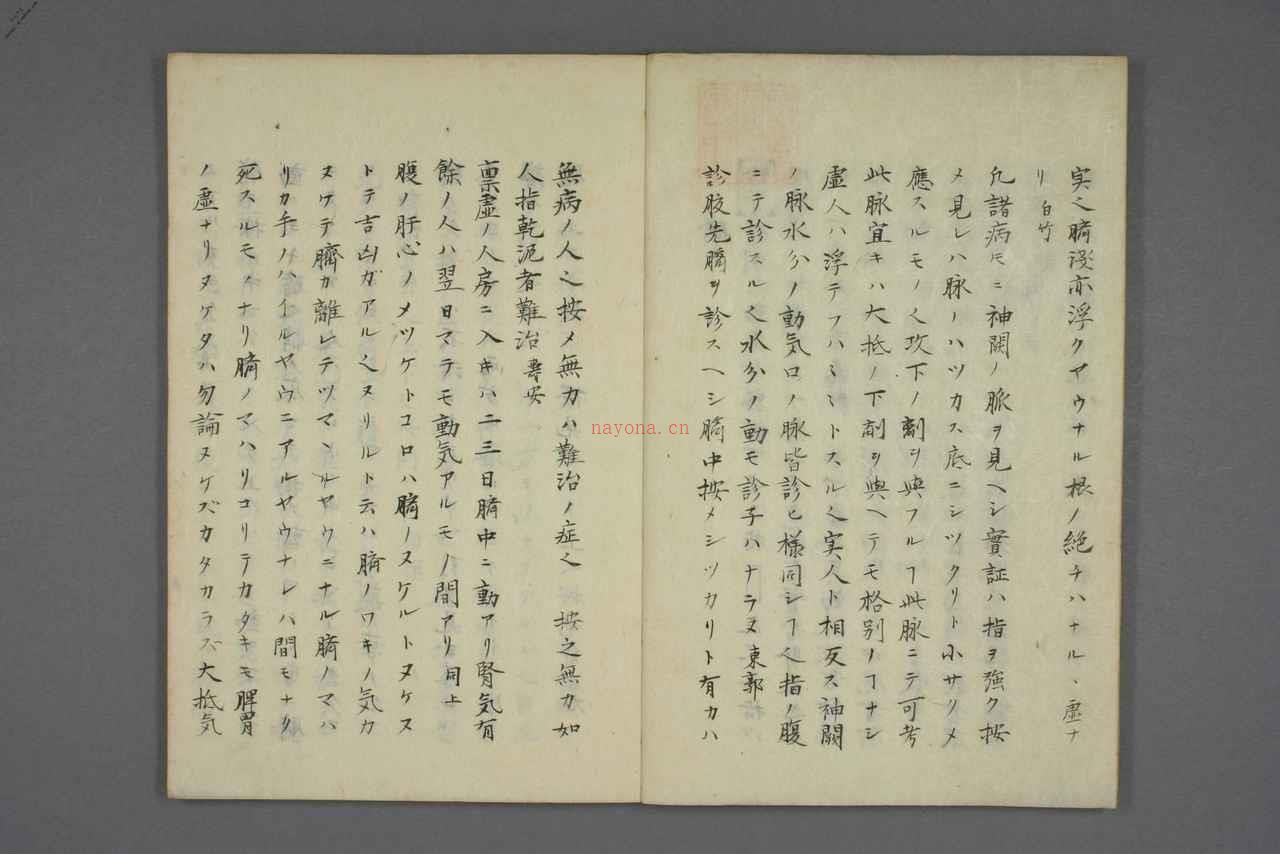 実之臍没亦浮クヤウナル根ノ絶チハナル、虚ナ
リ 白竹
凡諸病モニ神闕ノ脈ヲ見ヘシ實証ハ指ヲ強ク按
メ見レハ脉ノハツカス底ニシツクリト小サリメ
應スルモノ之攻下ノ劑ヲ與フルヿ此脉ニテ可考
此脉宜キハ大抵ノ下剤ヲ與ヘテモ格別ノヿナシ
虚人ハ浮テフハミミトスル之実人ト相反ス神闕
ノ脉水分ノ動気ロノ脉皆診ヒ様同シヿ之指ノ腹
ニテ診スル之水分ノ動モ診子ハナラヌ 東郭
診腹先臍ヲ診スヘシ臍中按メシツカリト有力ハ
無病ノ人之按メ無力ハ難治ノ症之 按之無力如
人指乾泥者難治 壽安
禀虚ノ人房ニ入キハ二三日臍中ニ動アリ腎気有
餘ノ人ハ翌日マテモ動気アルモノ間アリ 同上
腹ノ肝心ノメツケトコロハ臍ノヌケルトヌケヌ
トテ吉凶ガアル之ヌリルト云ハ臍ノワキノ気カ
ヌケテ臍カ離レテツマヽルヤウニナル臍ノマハ
リカ手ノハイルヤウニアルヤウナレハ間モナク
死スルモノナリ臍ノマハリコリテカタキモ脾胃
ノ虚ナリヌケタハ勿論ヌケズカタカラズ大抵気
nayona.cn